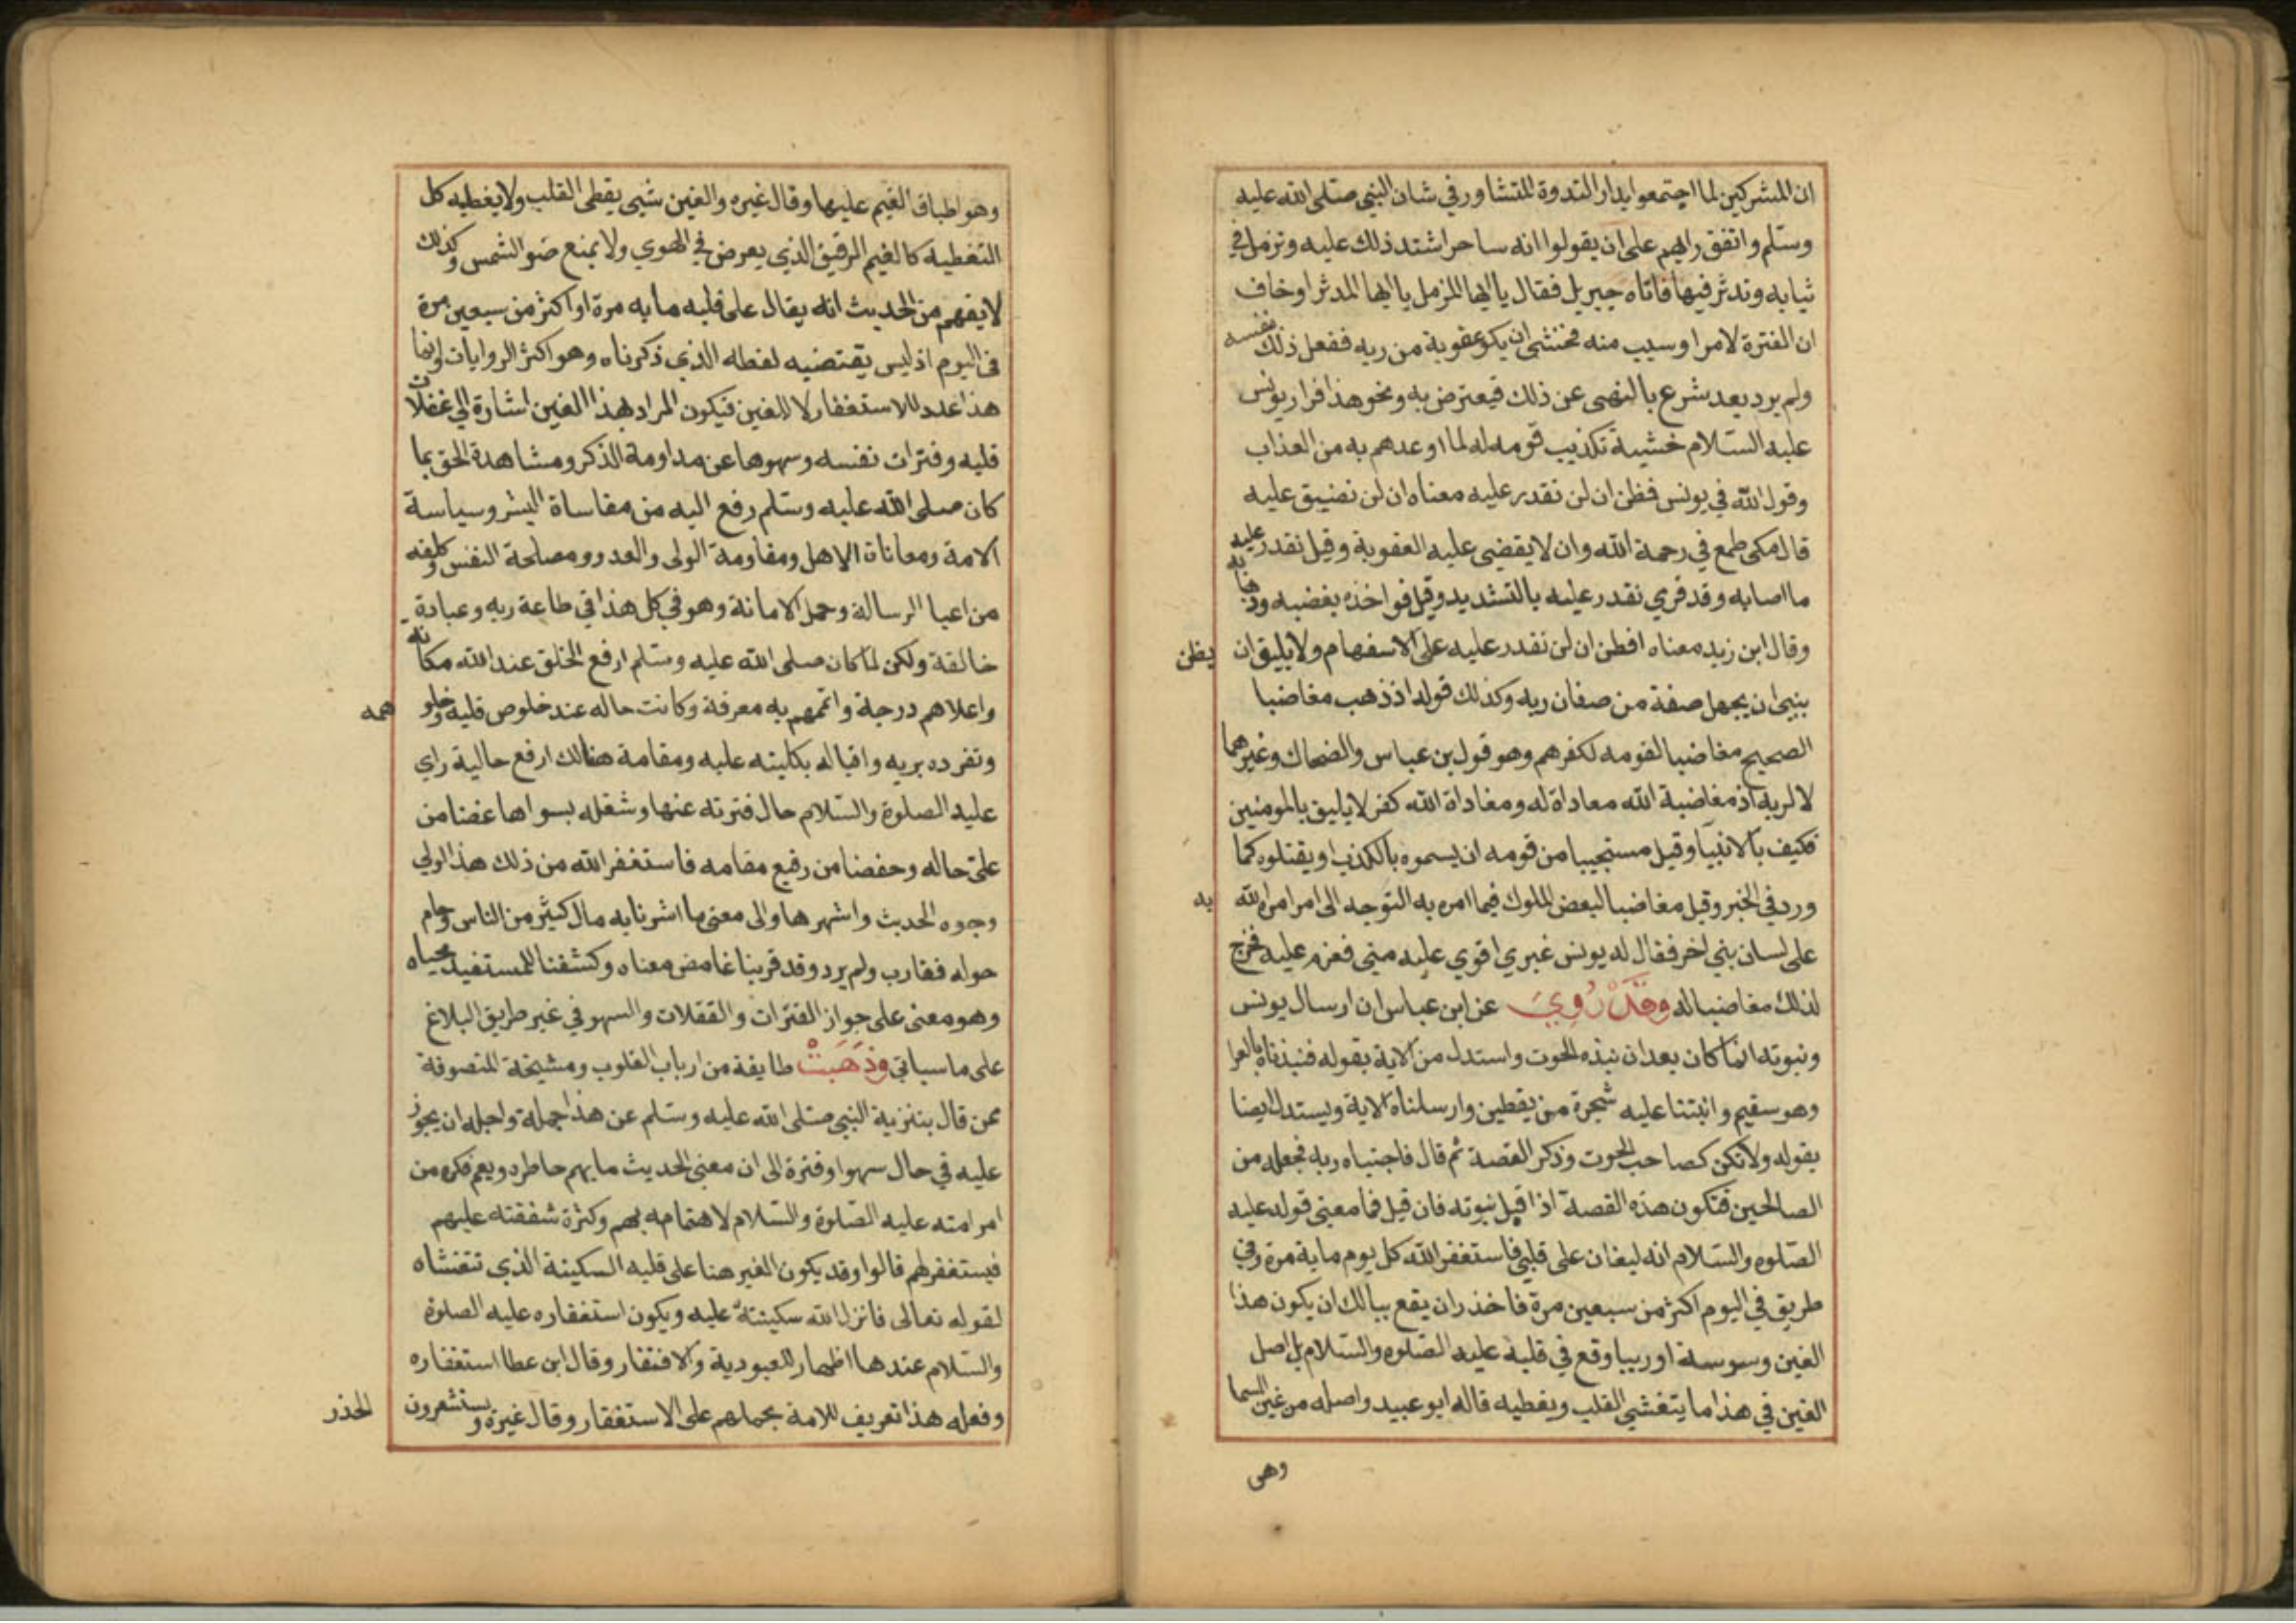 ان المشركين لما اجتمعوا بدار الندوة للتشاور في شان النبي صلى الله عليه
وسلم واتفق رايهم على ان يقولوا انه ساحر اشتد ذلك عليه وتزمل في
ثيابه وتدثر فيها فاتاه جبريل فقال يا ايها المزمل يا ايها المدثر او خاف
ان الفترة لامر او سبب منه فخشي ان يكو عقوبة من ربه ففعل ذلك بنفسه
ولم يرد بعد شرع بالنهى عن ذلك فيعترض به ونحو هذا فرار يونس
عليه السلام خشية تكذيب قومه له لما اوعدهم به من العذاب
وقول الله في يونس فظن ان لن نقدر عليه معناه ان لن نضيق عليه
قال مكى طمع في رحمة الله وان لا يقضى عليه العقوبة وقيل نقدر عليه
ما اصابه وقد قري نقدر عليه بالتشديد وقيل فواخذه بغضبه وذهابه
وقال ابن زيد معناه افظن ان لن نقدر عليه على الاسفهام ولا يليق ان يظن
بنبي ان يجهل صفة من صفات ربه وكذلك قوله اذ ذهب مغاضبا
الصحيح مغاضبا لقومه لكفرهم وهو قول بن عباس والضحاك وغيرهما
لا لربه اذ مغاضبة الله معاداة له ومعاداة الله كفر لا يليق بالمومنين
فكيف بالانبيا وقيل مستحييا من قومه ان يسموه بالكذب او يقتلوه كما
ورد في الخبر وقيل مغاضبا لبعض الملوك فيما امره به التوجه الى امر امره الله به
على لسان نبي اخر فقال له يونس غيري اقوي عليه مني فعزم عليه فخرج
لذلك مغاضبا له وقد روي عن ابن عباس ان ارسال يونس
ونبوته انما كان بعد ان نبذه الحوت واستدل من الاية بقوله فنبذناه بالعرا
وهو سقيم وانبتنا عليه شجرة من يقطين وارسلناه الاية ويستدل ايضا
بقوله ولا تكن كصاحب الحوت وذكر القصة ثم قال فاجتباه ربه فجعله من
الصالحين فتكون هذه القصة اذا قبل نبوته فان قيل فما معنى قوله عليه
الصلوه والسلام انه ليغان على قلبي فاستغفر الله كل يوم ماية مرة وفي
طريق في اليوم اكثر من سبعين مرة فاخذر ان يقع ببالك ان يكون هذا
الغين وسوسة او ريبا وقع في قلبه عليه الصلوه والسلام بل اصل
الغين في هذا ما يتغشي القلب ويغطيه قاله ابو عبيد واصله من غين السما
وهى
وهو اطباق الغيم عليها وقال غيره والغين شيى يغطى القلب ولا يغطيه كل
التغطية كالغيم الرقيق الذي يعرض في الهوي ولا يمنع ضو الشمس وكذلك
لا يفهم من الحديث انه يقال على قلبه مايه مرة او اكثر من سبعين مرة
فى اليوم اذ ليس يقتضيه لفظه الذي ذكرناه وهو اكثر الروايات وانما
هذا عدد للاستغفار لا للغين فيكون المراد بهذا الغين اشارة الي غفلات
قلبه وفترات نفسه وسهوها عن مداومة الذكر ومشاهدة الحق بما
كان صلى الله عليه وسلم رفع اليه من مقاساة البشر وسياسة
الامة ومعاناة الاهل ومقاومة الولى والعدو ومصلحة النفس وكلفه
من اعبا الرسالة وحمل الامانة وهو في كل هذا في طاعة ربه وعبادة
خالقة ولكن لما كان صلى الله عليه وسلم ارفع الخلق عند الله مكانه
واعلاهم درجة واتمهم به معرفة وكانت حاله عند خلوص قلبه وخلو همه
وتفرده بربه واقباله بكليته عليه ومقامة هنالك ارفع حالية راي
عليه الصلوة والسلام حال فترته عنها وشغله بسواها غضا من
على حاله وحفضا من رفيع مقامه فاستغفر الله من ذلك هذا اولي
وجوه الحديث واشهرها والى معنى ما اشرنا به مال كثير من الناس وحام
حوله فقارب ولم يرد وقد قربنا غامض معناه وكشفنا للمستفيد محياه
وهو معنى على جواز الفترات والغفلات والسهو في غير طريق البلاغ
على ما سياتي وذهبت طايفة من ارباب القلوب ومشيخة المتصوفة
ممن قال بتنزية النبي صلى الله عليه وسلم عن هذا جملة واجله ان يجوز
عليه في حال سهو او فترة الى ان معنى الحديث ما يهم خاطره ويغم فكره من
امر امته عليه الصلوة والسلام لاهتمامه بهم وكثرة شفقته عليهم
فيستغفر لهم قالوا وقد يكون الغير هنا على قلبه السكينة الذي تتغشاه
لقوله تعالى فانزل الله سكينته عليه ويكون استغفاره عليه الصلوة
والسلام عندها اظهار للعبودية والافتقار وقال ابن عطا استغفاره
وفعله هذا تعريف للامة بحملهم على الاستغفار وقال غيره ويستشعرون الحذر